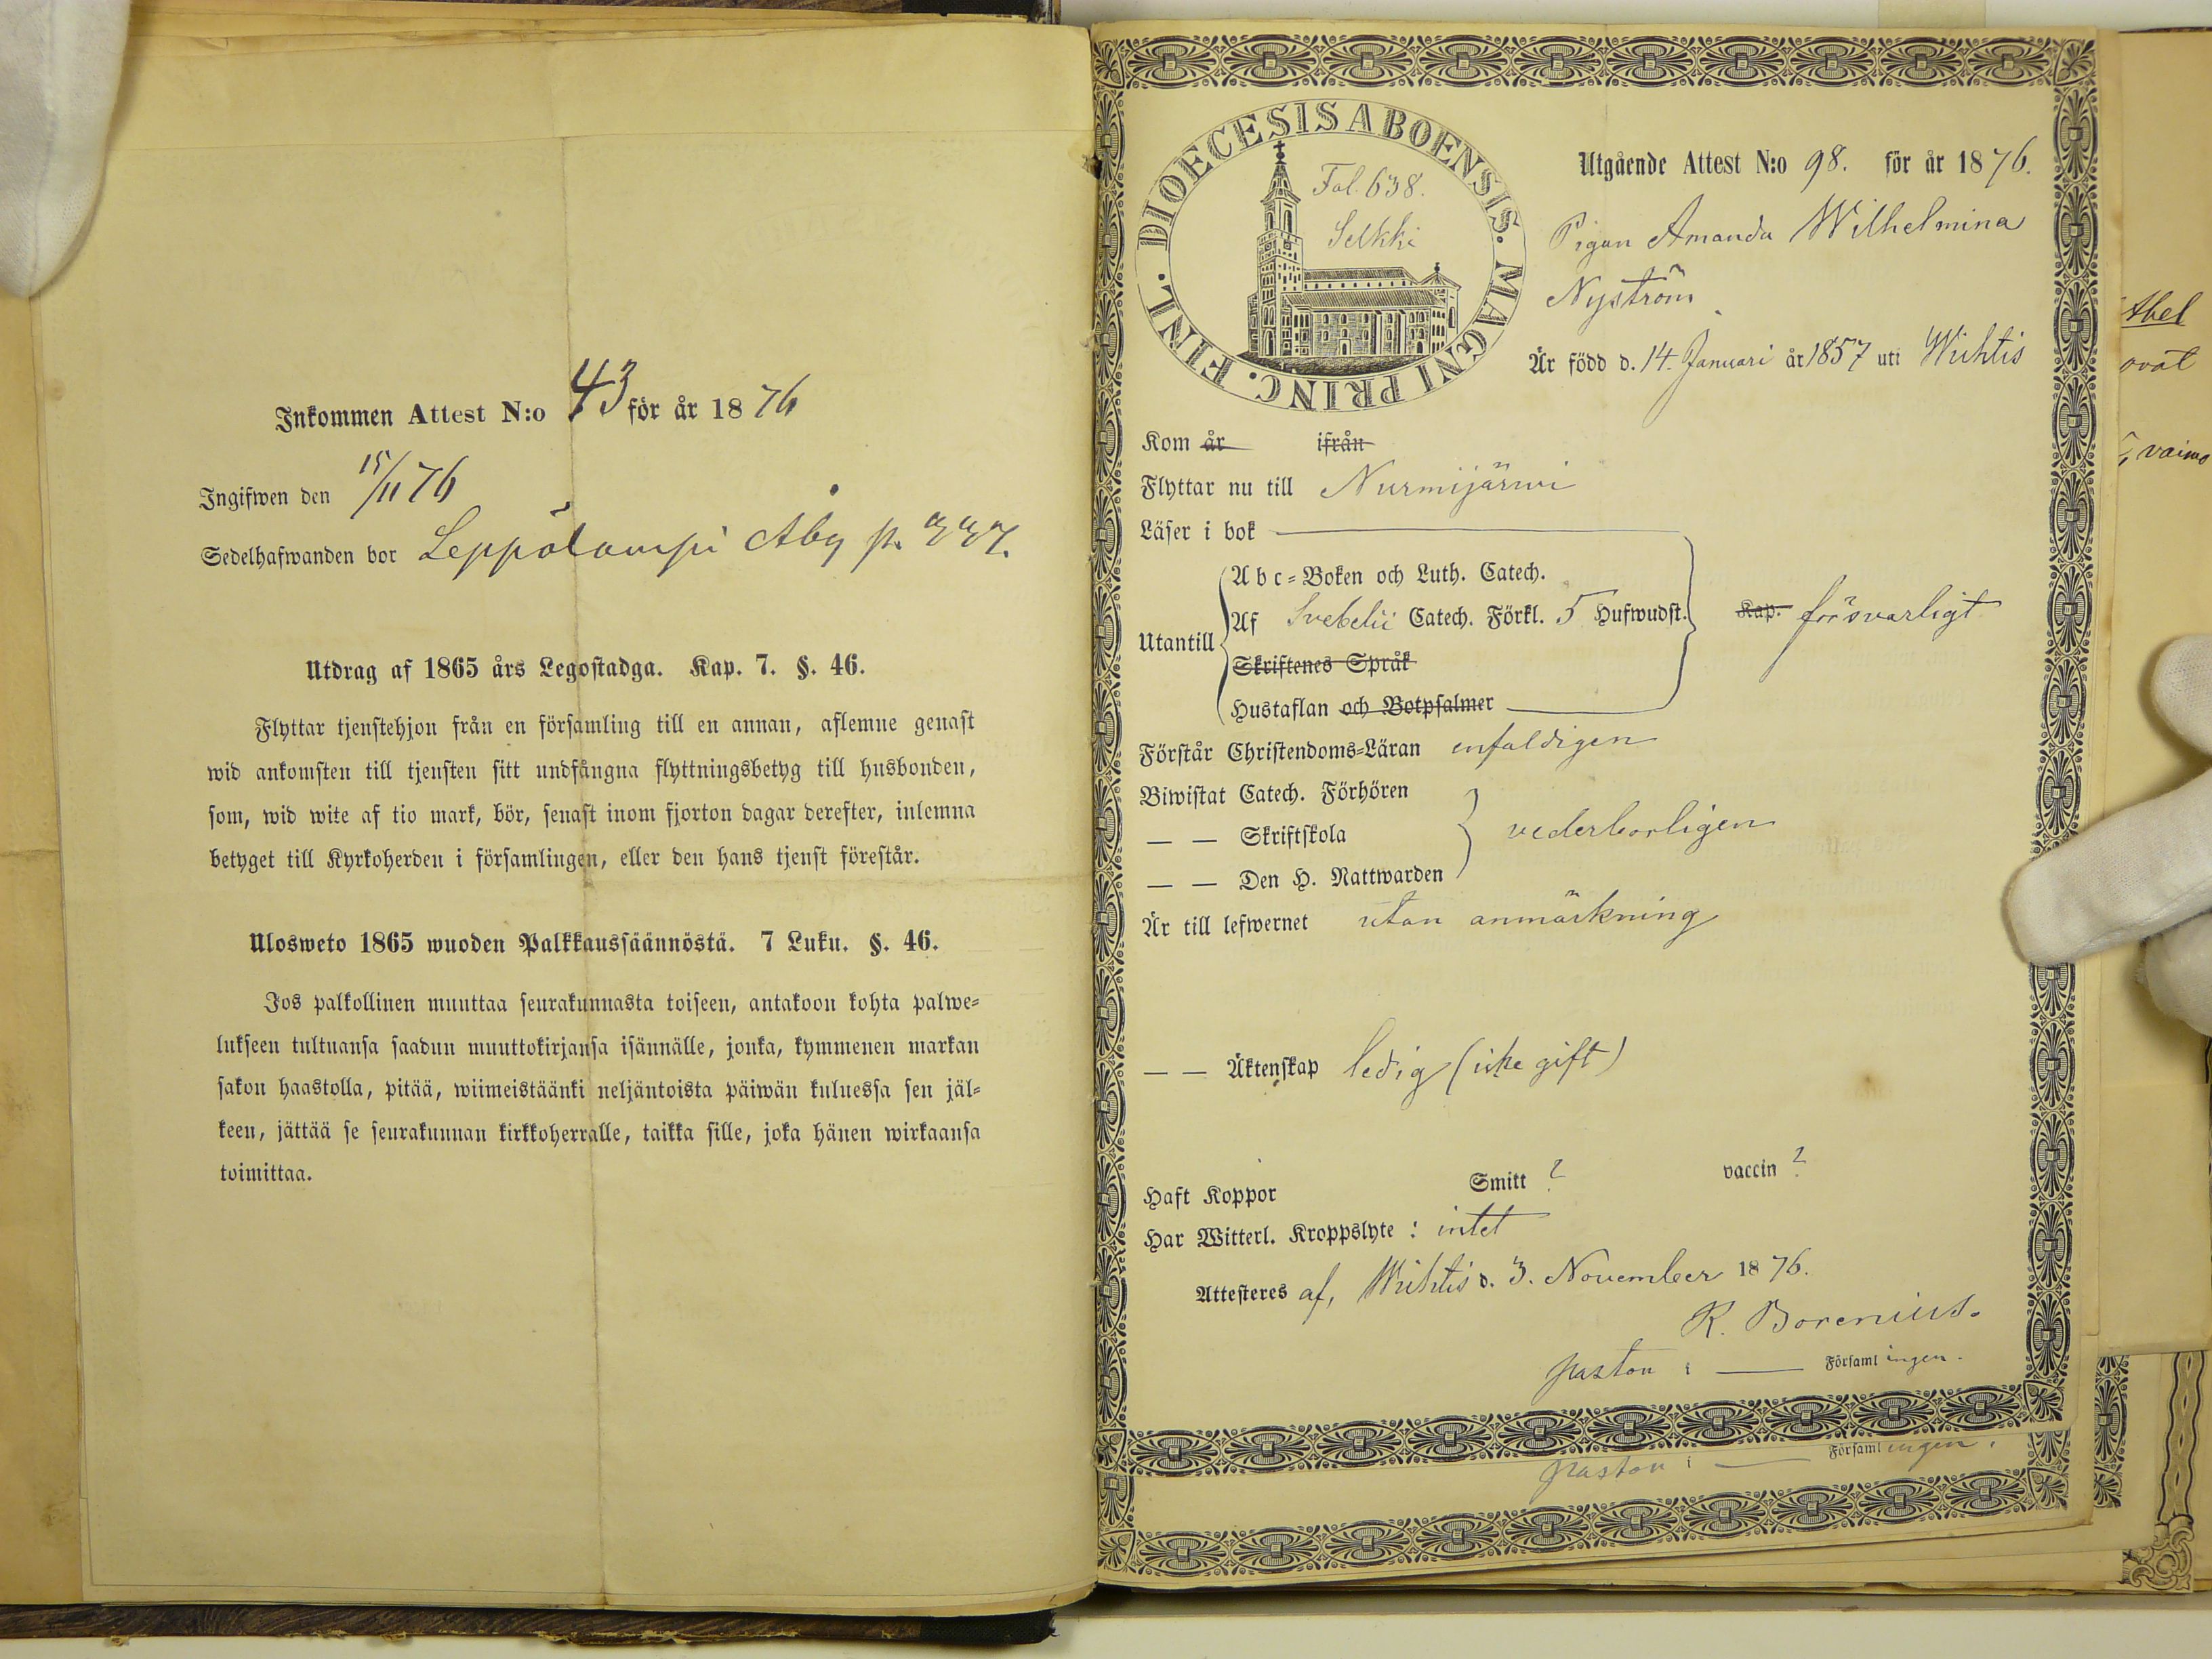 Inkommen Attest N:o 43 för år 1876
Ingifwen den 15/11 76
Sedelhafwanden bor Leppölampi Aby p.
Utdrag af 1865 års Legostadga. Kap. 7. §. 46.
Flyttar tjenstehjon från en församling till en annan, aflemne genast
wid ankomsten till tjensten sitt undfångna flyttningsbetyg till husbonden,
som, wid wite af tio mark, bör, senast inom fjorton dagar derefter, inlemna
betyget till Kyrkoherden i församlingen, eller den hans tjenst förestår.
Ulosweto 1865 wuoden Palkkaussäännöstä. 7 Luku. §. 46.
Jos palkollinen muuttaa seurakunnasta toiseen, antakoon kohta palwe-
lukseen tultuansa saadun muuttokirjansa isännälle, jonka, kymmenen markan
sakon haastolla, pitää, wiimeistäänki neljäntoista päiwän kuluessa sen jäl-
keen, jättää se seurakunnan kirkkoherralle, taikka sille, joka hänen wirkaansa
toimittaa.
DIOECESIS ABOENSIS. MAGNI PRINC. FINL.
Fol. 638.
Selkki
Utgående Attest N:o 98. för år 1876.
Pigan Amanda Wilhelmina
Nyström
Är född d. 14. Januari år 1857 uti Wichtis
Kom år ifrån
Flyttar nu till Nurmijärwi
Läser i bok
Abc-Boken och Luth. Catech.
Utantill Af Svebelii Catech. Förkl. 5 Hufwudst. Kap. försvarligt
Skriftenes Språk
Hustaflan och Botpsalmer
Förstår Christendoms-Läran enfaldigen
Biwistat Catech. Förhören
— — Skriftskola vederborligen
— — Den H. Nattwarden
Är till lefwernet utan anmärkning
— — Äktenskap ledig (icke gift)
Haft Koppor Smitt ? vaccin ?
Har Witterl. Kroppslyte : intet
Attesteres af, Wichtis d. 3. November 1876.
R. Borenius.
pastor i — Församlingen.
pastor i — Församlingen.
ovat
vaimo